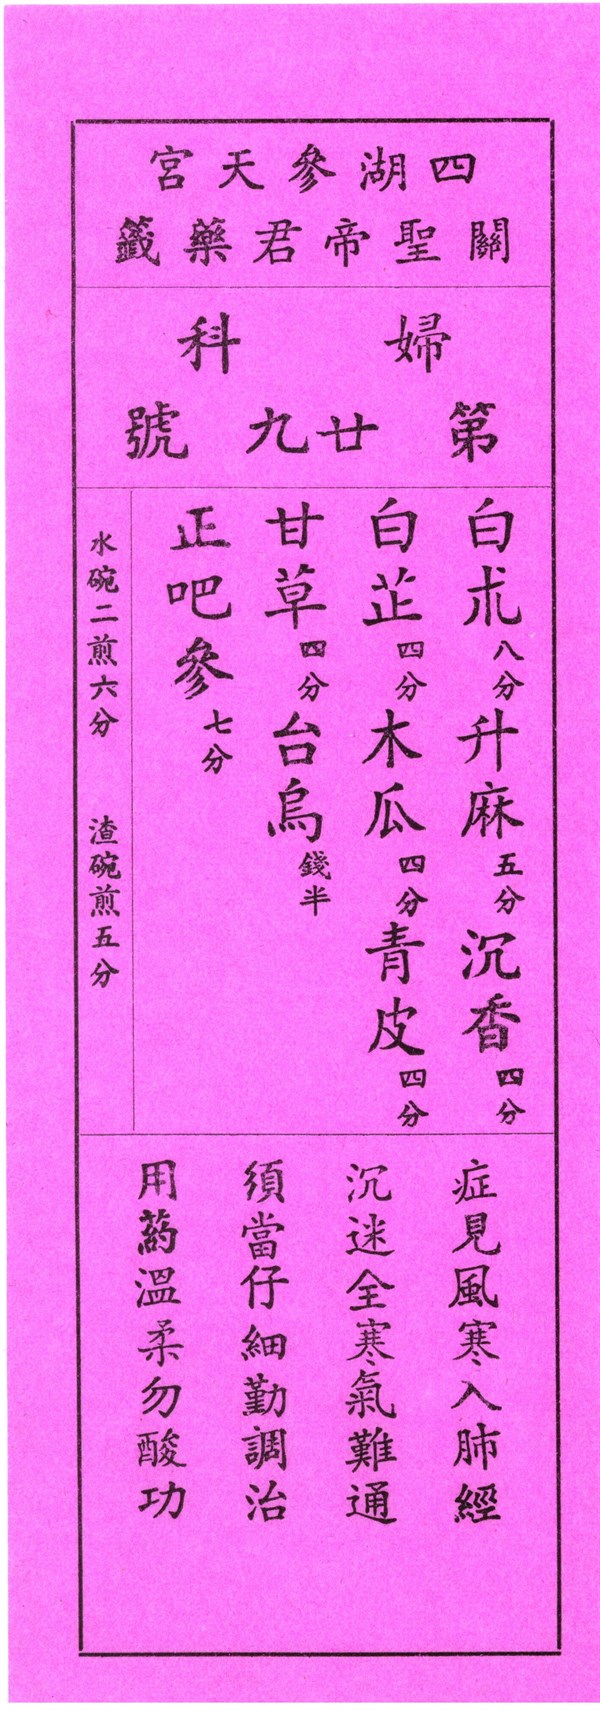 四湖參天宮
關聖帝君藥籤
婦科
第廿九號
白朮八分升麻五分沉香四分
白芷四分木瓜四分青皮四分
甘草四分台烏錢半
正吧參七分
水碗二煎六分　渣碗煎五分
症見風寒入肺經
沉迷全寒氣難通
須當仔細勤調治
用葯溫柔勿酸功